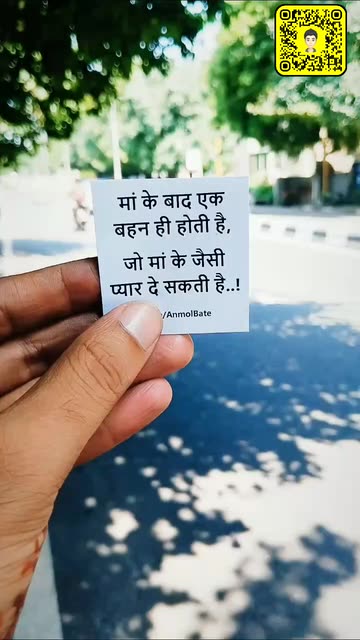 मां के बाद एक
बहन ही होती है,
जो मां के जैसी
प्यार दे सकती है..!
/AnmolBate